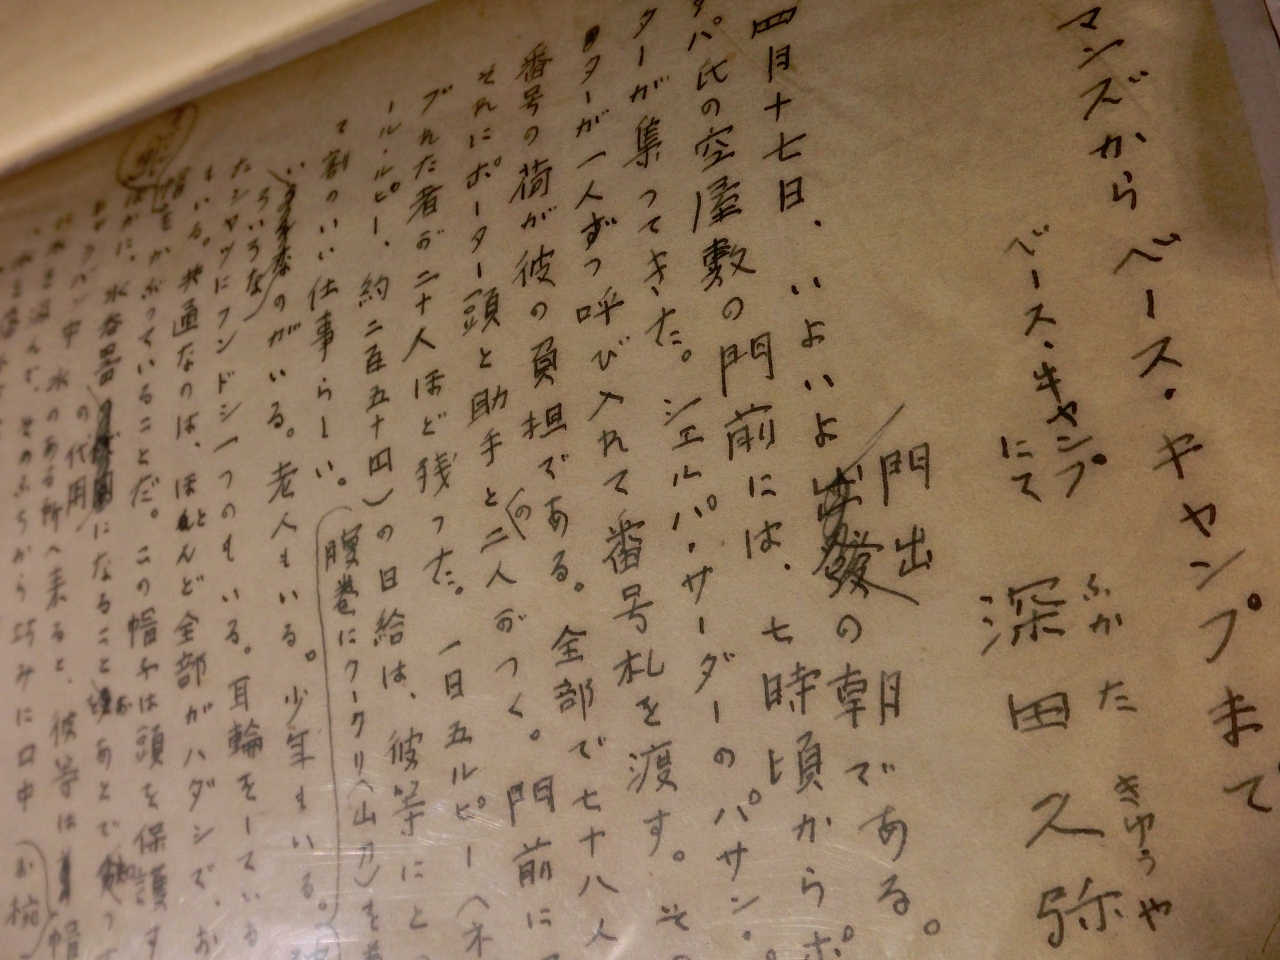 マンズからベース・キャンプまで
ベース・キャンプにて
深田久弥
ふかた きゅうや
門出
四月十七日、いよいよ出發の朝である。
パ氏の空屋敷の門前には、七時頃からポ
ターが集ってきた。シェルパ・サーダーのパサン・
ターが一人ずつ呼び入れて番号札を渡す。その
番号の荷が彼の負担である。全部で七十八人
それにポーター頭と助手との二人がつく。門前に
ブれた者が二十人ほど残った。一日五ルピー(ネ
ール・ルピー、約二百五十円)の日給は、彼等にと
て割のいい仕事らしい。
腹巻にクークリ(山刀)を
いろいろなのがいる。老人もいる。少年もいる。
たシャツにフンドシ一つのもいる。耳輪をしている
もいる。共通なのは、ほとんど全部がハダシで、お
帽をかぶっていることだ。この帽子は頭を保護す
ほかに、水呑器の代用になること
ャラバン中、水のある所へ来ると、彼等は帽
そのふちから巧みに口中
お椀